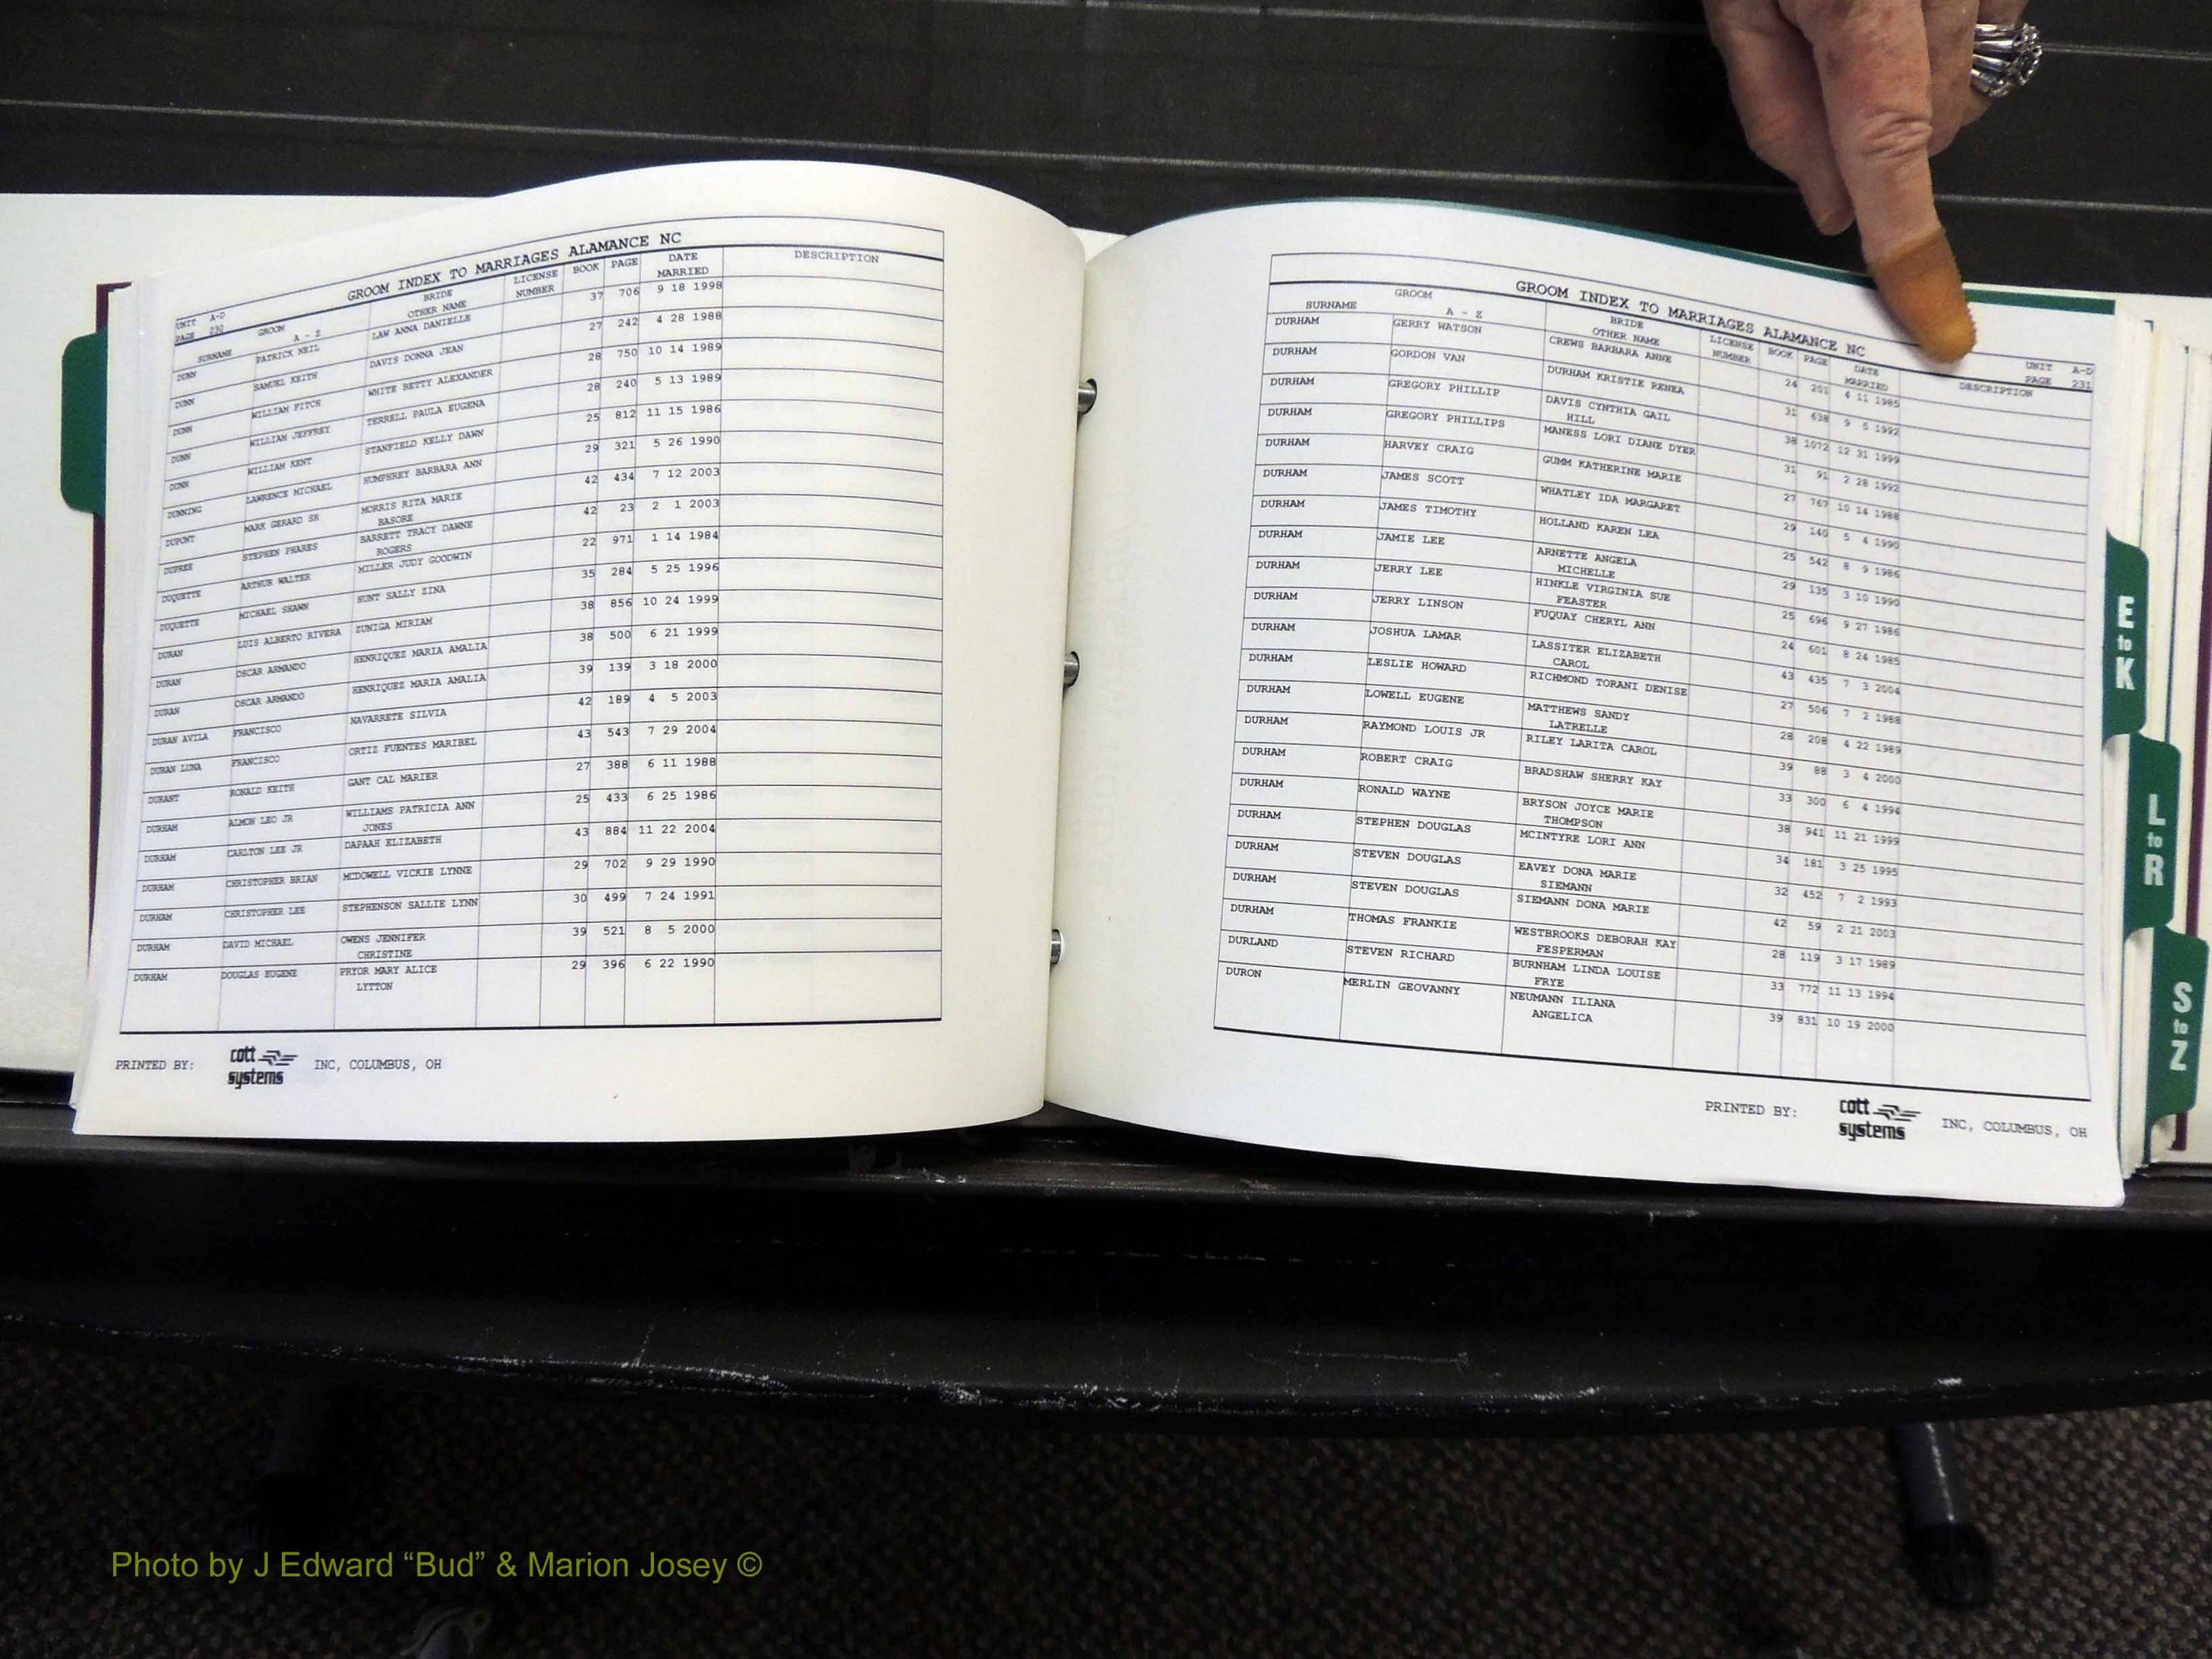 UNIT A-D
PAGE 230
GROOM INDEX TO MARRIAGES ALAMANCE NC
SURNAME GROOM A - Z BRIDE OTHER NAME LICENSE NUMBER BOOK PAGE DATE MARRIED DESCRIPTION
DUNN PATRICK NEIL LAW ANNA DANIELLE 37 706 9 18 1998
DUNN SAMUEL KEITH DAVIS DONNA JEAN 27 242 4 28 1988
DUNN WILLIAM FITCH WHITE BETTY ALEXANDER 28 750 10 14 1989
DUNN WILLIAM JEFFREY TERRELL PAULA EUGENA 28 240 5 13 1989
DUNN WILLIAM KENT STANFIELD KELLY DAWN 25 812 11 15 1986
DUNNING LAWRENCE MICHAEL HUMPHREY BARBARA ANN 29 321 5 26 1990
DUPONT MARK GERARD SR MORRIS RITA MARIE 42 434 7 12 2003
BASORE
DUPREE STEPHEN PHARES BARRETT TRACY DAWNE 42 23 2 1 2003
ROGERS
DUQUETTE ARTHUR WALTER MILLER JUDY GOODWIN 22 971 1 14 1984
DUQUETTE MICHAEL SHAWN HUNT SALLY ZINA 35 284 5 25 1996
DURAN LUIS ALBERTO RIVERA ZUNIGA MIRIAM 38 856 10 24 1999
DURAN OSCAR ARMANDO HENRIQUEZ MARIA AMALIA 38 500 6 21 1999
DURAN OSCAR ARMANDO HENRIQUEZ MARIA AMALIA 39 139 3 18 2000
DURAN AVILA FRANCISCO NAVARRETE SILVIA 42 189 4 5 2003
DURAN LUNA FRANCISCO ORTIZ FUENTES MARIBEL 43 543 7 29 2004
DURANT RONALD KEITH GANT CAL MARIER 27 388 6 11 1988
DURHAM ALMON LEO JR WILLIAMS PATRICIA ANN 25 433 6 25 1986
JONES
DURHAM CARLTON LEE JR DAPAAH ELIZABETH 43 884 11 22 2004
DURHAM CHRISTOPHER BRIAN MCDOWELL VICKIE LYNNE 29 702 9 29 1990
DURHAM CHRISTOPHER LEE STEPHENSON SALLIE LYNN 30 499 7 24 1991
DURHAM DAVID MICHAEL OWENS JENNIFER 39 521 8 5 2000
CHRISTINE
DURHAM DOUGLAS EUGENE PRYOR MARY ALICE 29 396 6 22 1990
LYTTON
PRINTED BY: cott systems INC, COLUMBUS, OH
GROOM INDEX TO MARRIAGES ALAMANCE NC
UNIT A-D
PAGE 231
SURNAME GROOM A - Z BRIDE OTHER NAME LICENSE NUMBER BOOK PAGE DATE MARRIED DESCRIPTION
DURHAM GERRY WATSON CREWS BARBARA ANNE 24 201 4 11 1985
DURHAM GORDON VAN DURHAM KRISTIE RENEA 31 638 9 5 1992
DURHAM GREGORY PHILLIP DAVIS CYNTHIA GAIL 38 1072 12 31 1999
HILL
DURHAM GREGORY PHILLIPS MANESS LORI DIANE DYER 31 91 2 28 1992
DURHAM HARVEY CRAIG GUMM KATHERINE MARIE 27 767 10 14 1988
DURHAM JAMES SCOTT WHATLEY IDA MARGARET 29 140 5 4 1990
DURHAM JAMES TIMOTHY HOLLAND KAREN LEA 25 542 8 9 1986
DURHAM JAMIE LEE ARNETTE ANGELA 29 135 3 10 1990
MICHELLE
DURHAM JERRY LEE HINKLE VIRGINIA SUE 25 696 9 27 1986
FEASTER
DURHAM JERRY LINSON FUQUAY CHERYL ANN 24 601 8 24 1985
DURHAM JOSHUA LAMAR LASSITER ELIZABETH 43 435 7 3 2004
CAROL
DURHAM LESLIE HOWARD RICHMOND TORANI DENISE 27 506 7 2 1988
DURHAM LOWELL EUGENE MATTHEWS SANDY 28 208 4 22 1989
LATRELLE
DURHAM RAYMOND LOUIS JR RILEY LARITA CAROL 39 88 3 4 2000
DURHAM ROBERT CRAIG BRADSHAW SHERRY KAY 33 300 6 4 1994
DURHAM RONALD WAYNE BRYSON JOYCE MARIE 38 941 11 21 1999
THOMPSON
DURHAM STEPHEN DOUGLAS MCINTYRE LORI ANN 34 181 3 25 1995
DURHAM STEVEN DOUGLAS EAVEY DONA MARIE 32 452 7 2 1993
SIEMANN
DURHAM STEVEN DOUGLAS SIEMANN DONA MARIE 42 59 2 21 2003
DURHAM THOMAS FRANKIE WESTBROOKS DEBORAH KAY 28 119 3 17 1989
FESPERMAN
DURLAND STEVEN RICHARD BURNHAM LINDA LOUISE 33 772 11 13 1994
FRYE
DURON MERLIN GEOVANNY NEUMANN ILIANA 39 831 10 19 2000
ANGELICA
PRINTED BY: cott systems INC, COLUMBUS, OH
E to K
L to R
S to Z
Photo by J Edward “Bud” & Marion Josey ©